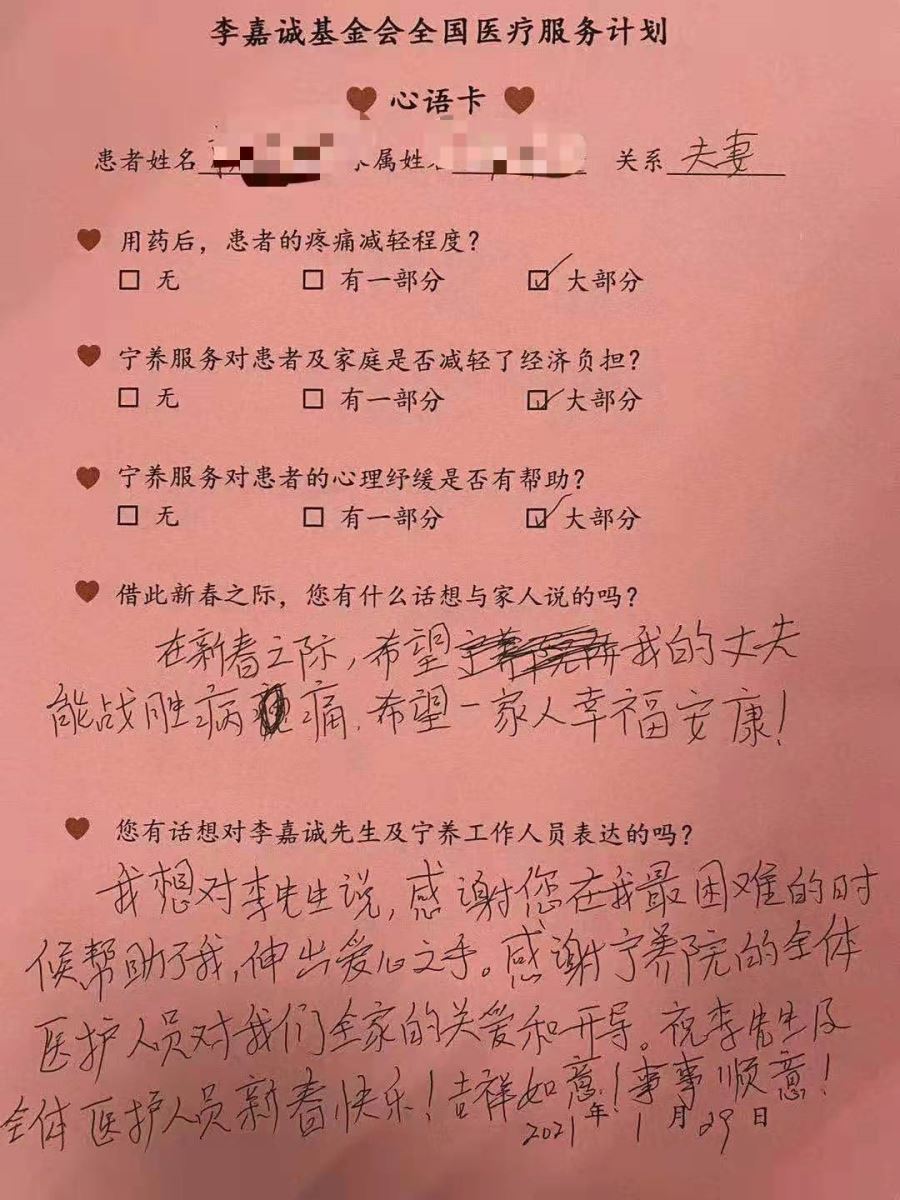 李嘉诚基金会全国医疗服务计划
心语卡
患者姓名 属姓 关系 夫妻
用药后，患者的疼痛减轻程度？
□ 无 □ 有一部分 ☑ 大部分
宁养服务对患者及家庭是否减轻了经济负担？
□ 无 □ 有一部分 ☑ 大部分
宁养服务对患者的心理纾缓是否有帮助？
□ 无 □ 有一部分 ☑ 大部分
借此新春之际，您有什么话想与家人说的吗？
在新春之际，希望我的丈夫
能战胜病痛.希望一家人幸福安康！
您有话想对李嘉诚先生及宁养工作人员表达的吗？
我想对李先生说，感谢您在我最困难的时
候帮助了我，伸出爱心之手。感谢宁养院的全体
医护人员对我们全家的关爱和开导。祝李先生及
全体医护人员新春快乐！吉祥如意！事事顺意！
2021年1月29日